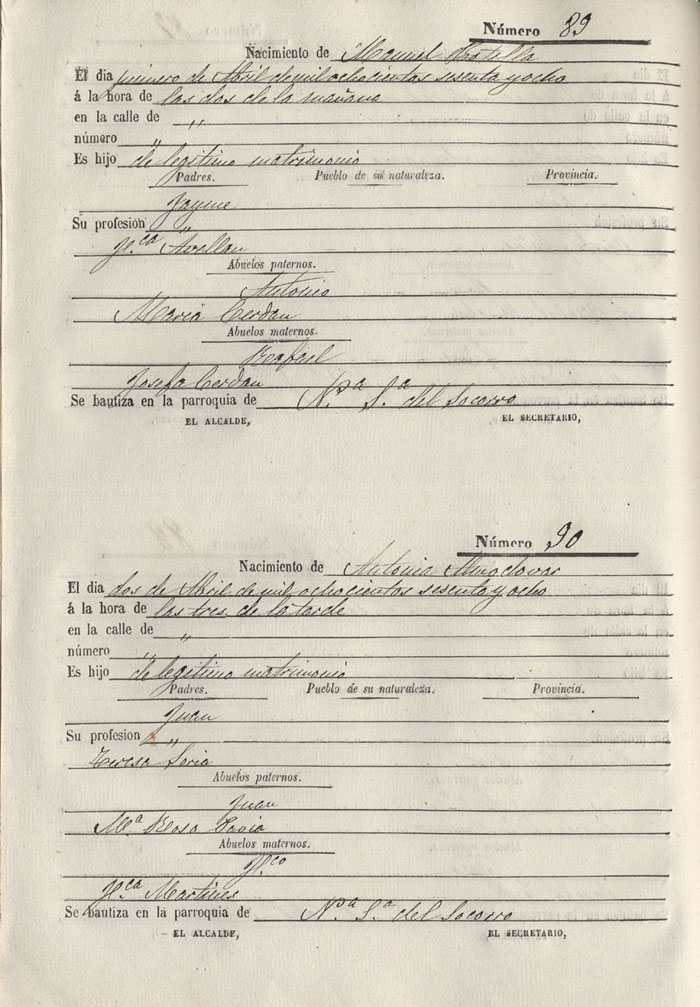 Número 89
Nacimiento de Manuel Botella
El dia primero de Abril de mil ochocientos sesenta y ocho
á la hora de las dos de la mañana
en la calle de „
número „
Es hijo de legitimo matrimonio
Padres. Pueblo de su naturaleza. Provincia.
Jayme
Su profesión „
Fca Avellan
Abuelos paternos.
Antonio
Maria Cerdan
Abuelos maternos.
Rafael
Josefa Cerdan
Se bautiza en la parroquia de Nra Sa del Socorro
EL ALCALDE, EL SECRETARIO,
Número 90
Nacimiento de Antonio Almodovar
El dia dos de Abril de mil ochocientos sesenta y ocho
á la hora de las tres de la tarde
en la calle de „
número „
Es hijo de legitimo matrimonio
Padres. Pueblo de su naturaleza. Provincia.
Juan
Su profesión „
Teresa Soria
Abuelos paternos.
Juan
Ma Rosa
Abuelos maternos.
Fco
Fca Martines
Se bautiza en la parroquia de Nra Sa del Socorro
EL ALCALDE, EL SECRETARIO,